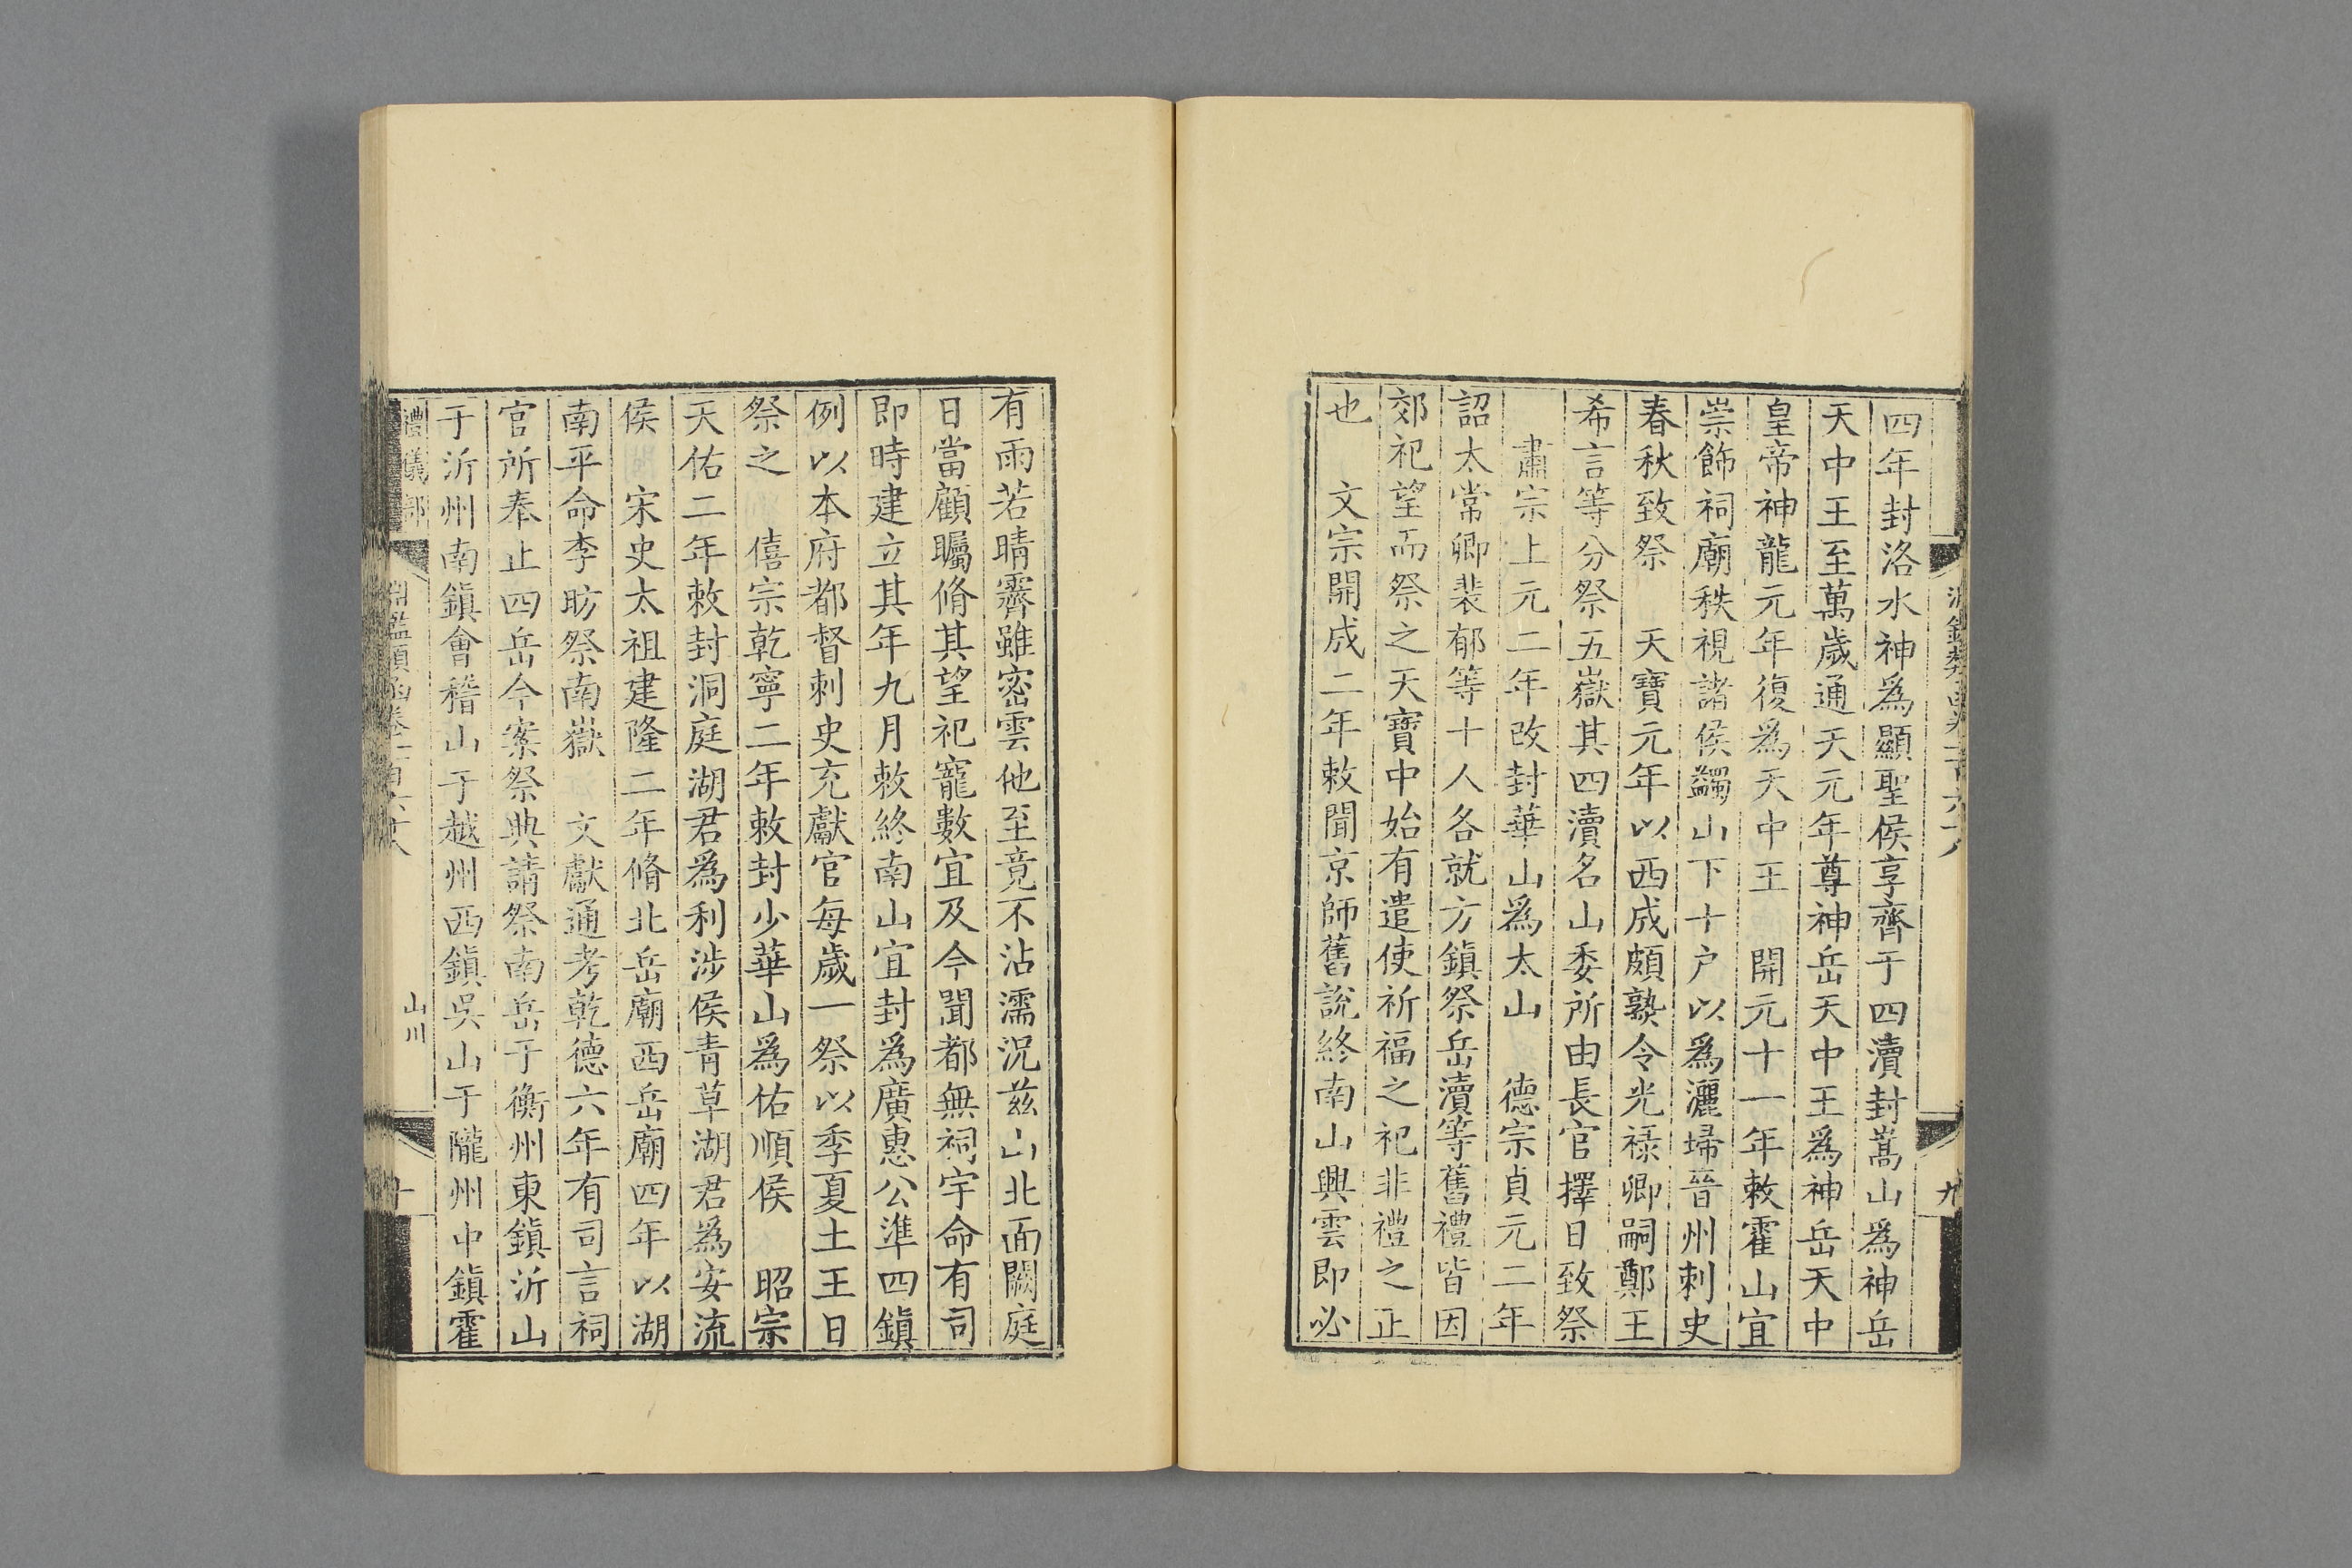 四年封洛水神爲顯聖侯享齊于四瀆封嵩山爲神岳
天中王至萬歲通天元年尊神岳天中王爲神岳天中
皇帝神龍元年復爲天中王　開元十一年敕霍山宜
崇飾祠廟秩視諸侯蠲山下十户以爲灑埽晉州刺史
春秋致祭　天寶元年以西成頗孰令光禄卿嗣鄭王
希言等分祭五嶽其四瀆名山委所由長官擇日致祭
肅宗上元二年改封華山爲太山　德宗貞元二年
詔太常卿裴郁等十人各就方鎮祭岳瀆等舊禮皆因
郊祀望而祭之天寶中始有遣使祈福之祀非禮之正
也　文宗開成二年敕聞京師舊說終南山興雲即必
九
有雨若晴霽雖密雲他至竟不沾濡况兹山北面闕庭
日當顧矚脩其望祀寵數宜及今聞都無祠宇命有司
即時建立其年九月敕終南山宜封爲廣惠公準四鎮
例以本府都督刺史充獻官每歲一祭以季夏土王日
祭之　僖宗乾寧二年敕封少華山爲佑順侯　昭宗
天佑二年敕封洞庭湖君爲利涉侯青草湖君爲安流
侯　宋史太祖建隆二年脩北岳廟西岳廟四年以湖
南平命李昉祭南嶽　文獻通考乾德六年有司言祠
官所奉止四岳今案祭典請祭南岳于衡州東鎮沂山
于沂州南鎮會稽山于越州西鎮吳山于隴州中鎮霍
禮儀部
淵鑑類函卷一百六十八
山川
十